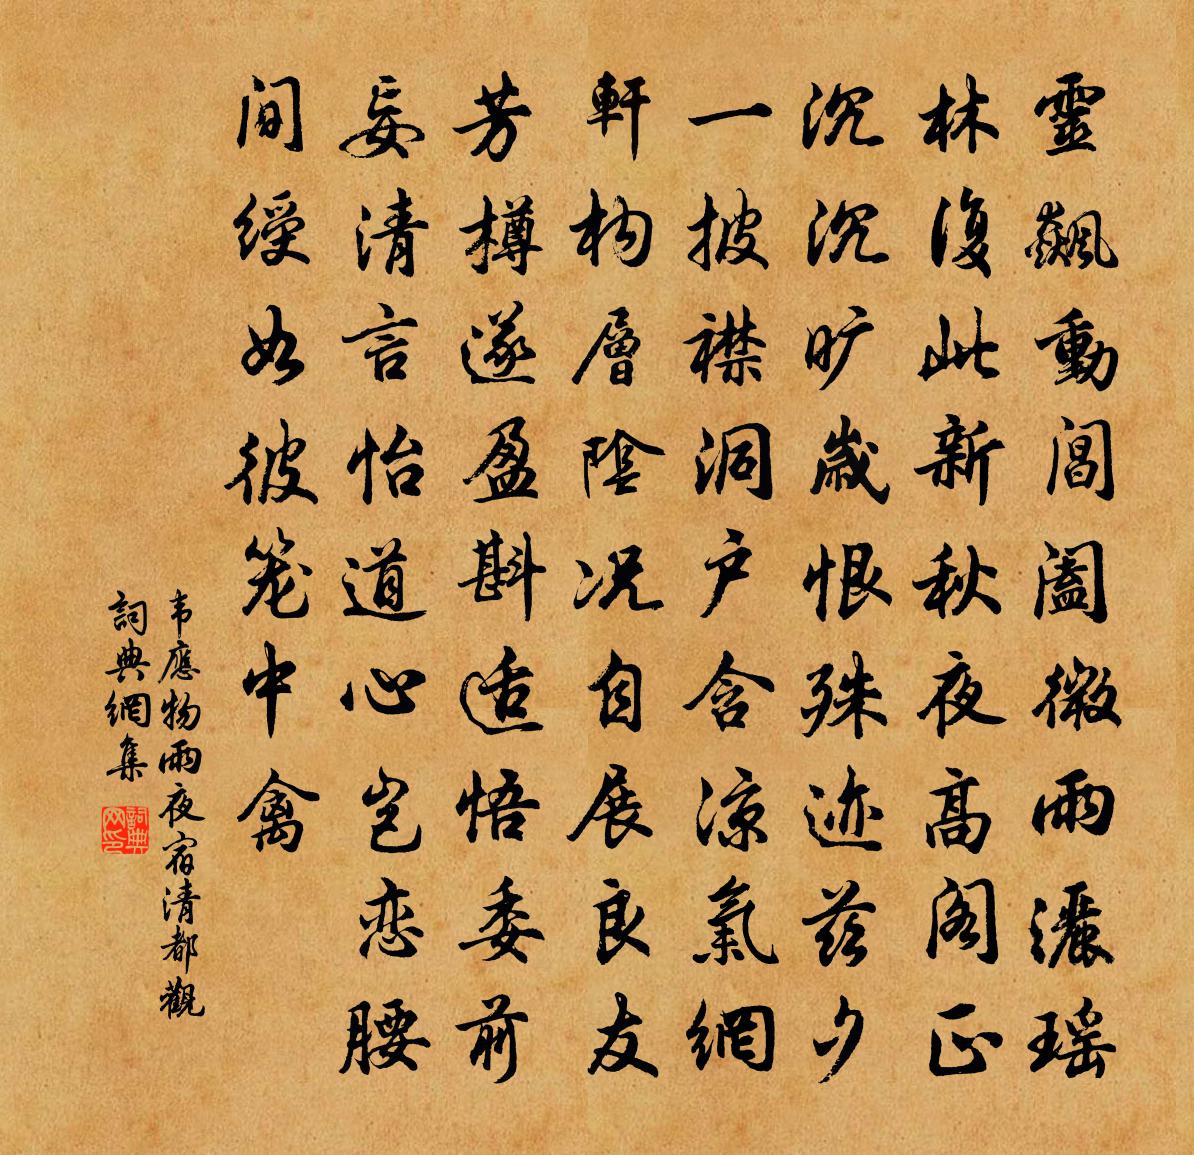 靈飆動閶闔微雨灑瑶
林復此新秋夜高閣正
沉沉旷歲恨殊迹兹夕
一披襟洞户含凉氣網
軒构層陰况自展良友
芳樽遂盈斟适悟委前
妄清言怡道心岂恋腰
间绶如彼笼中禽
韦應物雨夜宿清都觀
詞典網集
詞典网印